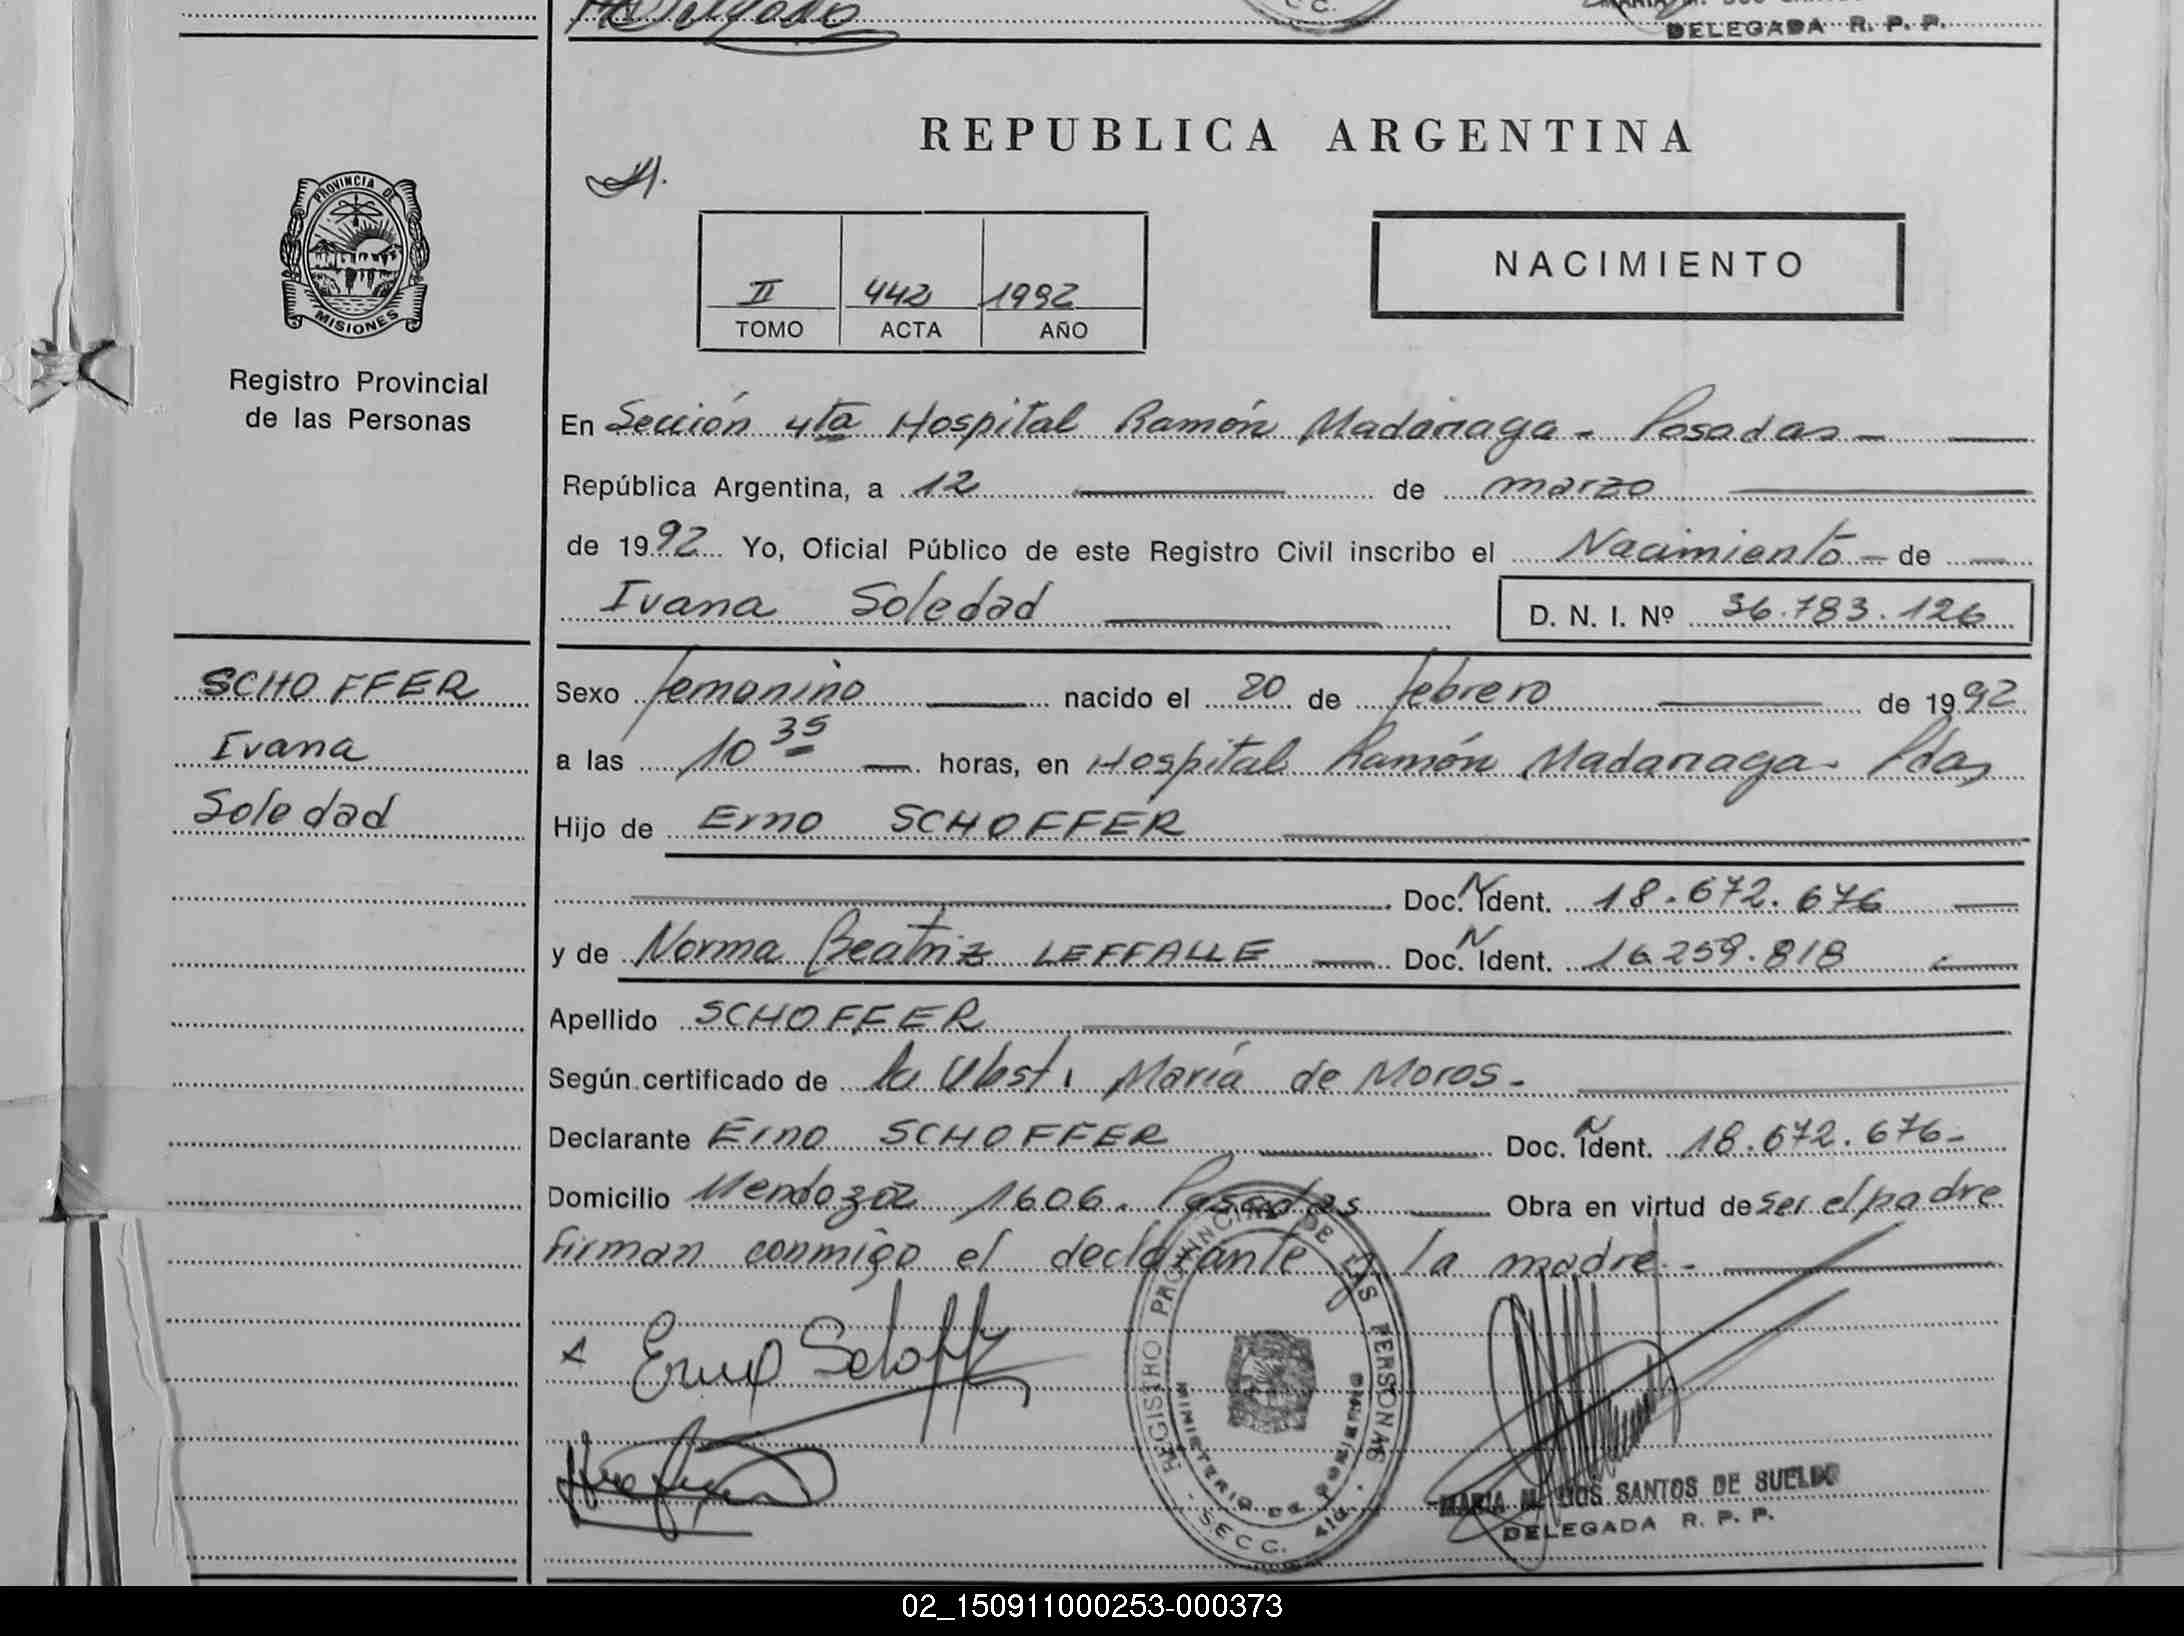 DELEGADA R. P. P.
REPUBLICA ARGENTINA
PROVINCIA DE
MISIONES
Registro Provincial
de las Personas
II 442 1992
TOMO ACTA AÑO
NACIMIENTO
En Sección 4ta Hospital Ramón Madariaga - Posadas -
República Argentina, a 12 de marzo
de 1992 Yo, Oficial Público de este Registro Civil inscribo el Nacimiento - de
Ivana Soledad D. N. I. Nº 36.783.126
SCHOFFER
Ivana
Soledad
Sexo femenino nacido el 20 de febrero de 1992
a las 10 35 horas, en Hospital Ramón Madariaga - Pdas
Hijo de Erno SCHOFFER
Doc. N Ident. 18.672.676
y de Norma Beatriz LEFFALLE Doc. N Ident. 16.259.818
Apellido SCHOFFER
Según certificado de la Obst. María de Moros -
Declarante Erno SCHOFFER Doc. N Ident. 18.672.676-
Domicilio Mendoza 1606. Posadas Obra en virtud de ser el padre
firman conmigo el declarante y la madre. -
REGISTRO PROVINCIAL DE LAS PERSONAS
SECC. 4ta.
MARIA M. DOS SANTOS DE SUELDO
DELEGADA R. P. P.
02_150911000253-000373